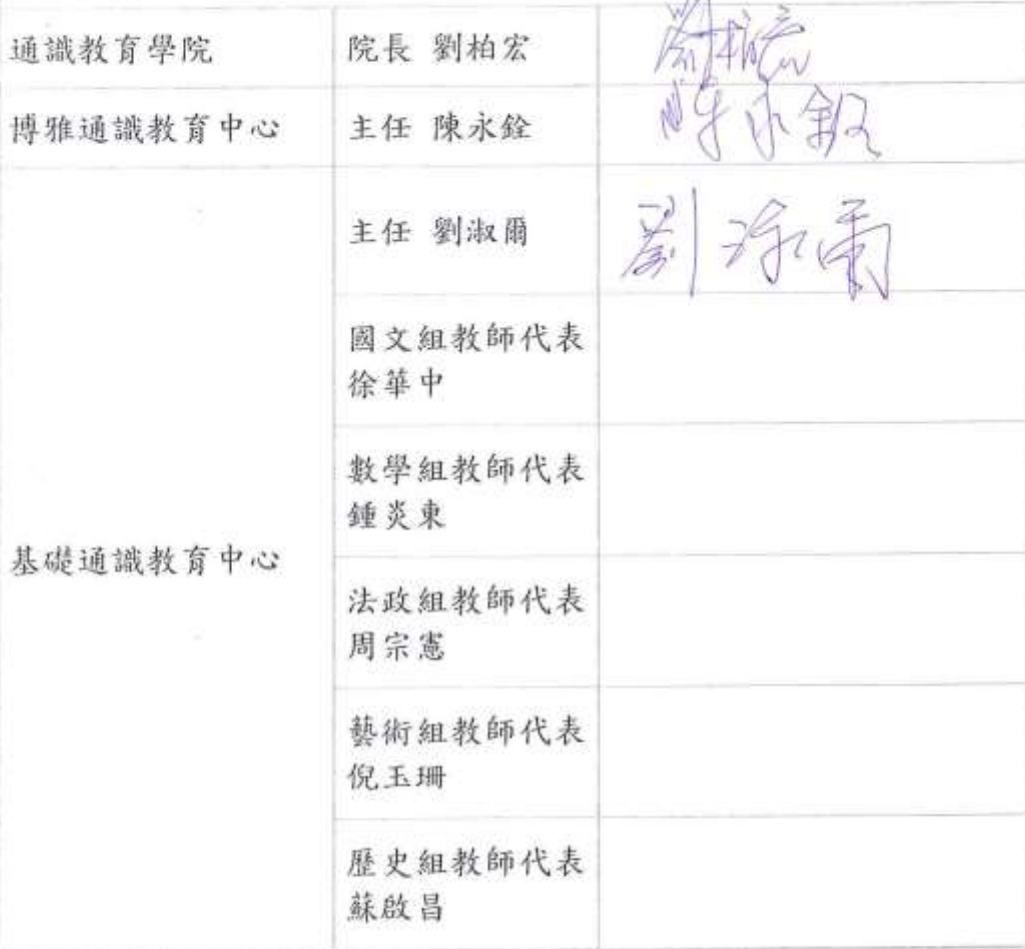 通識教育學院
院長 劉柏宏
劉柏宏
博雅通識教育中心
主任 陳永銓
陳永銓
主任 劉淑爾
劉淑爾
基礎通識教育中心
國文組教師代表
徐華中
數學組教師代表
鍾炎東
法政組教師代表
周宗憲
藝術組教師代表
倪玉珊
歷史組教師代表
蘇啟昌